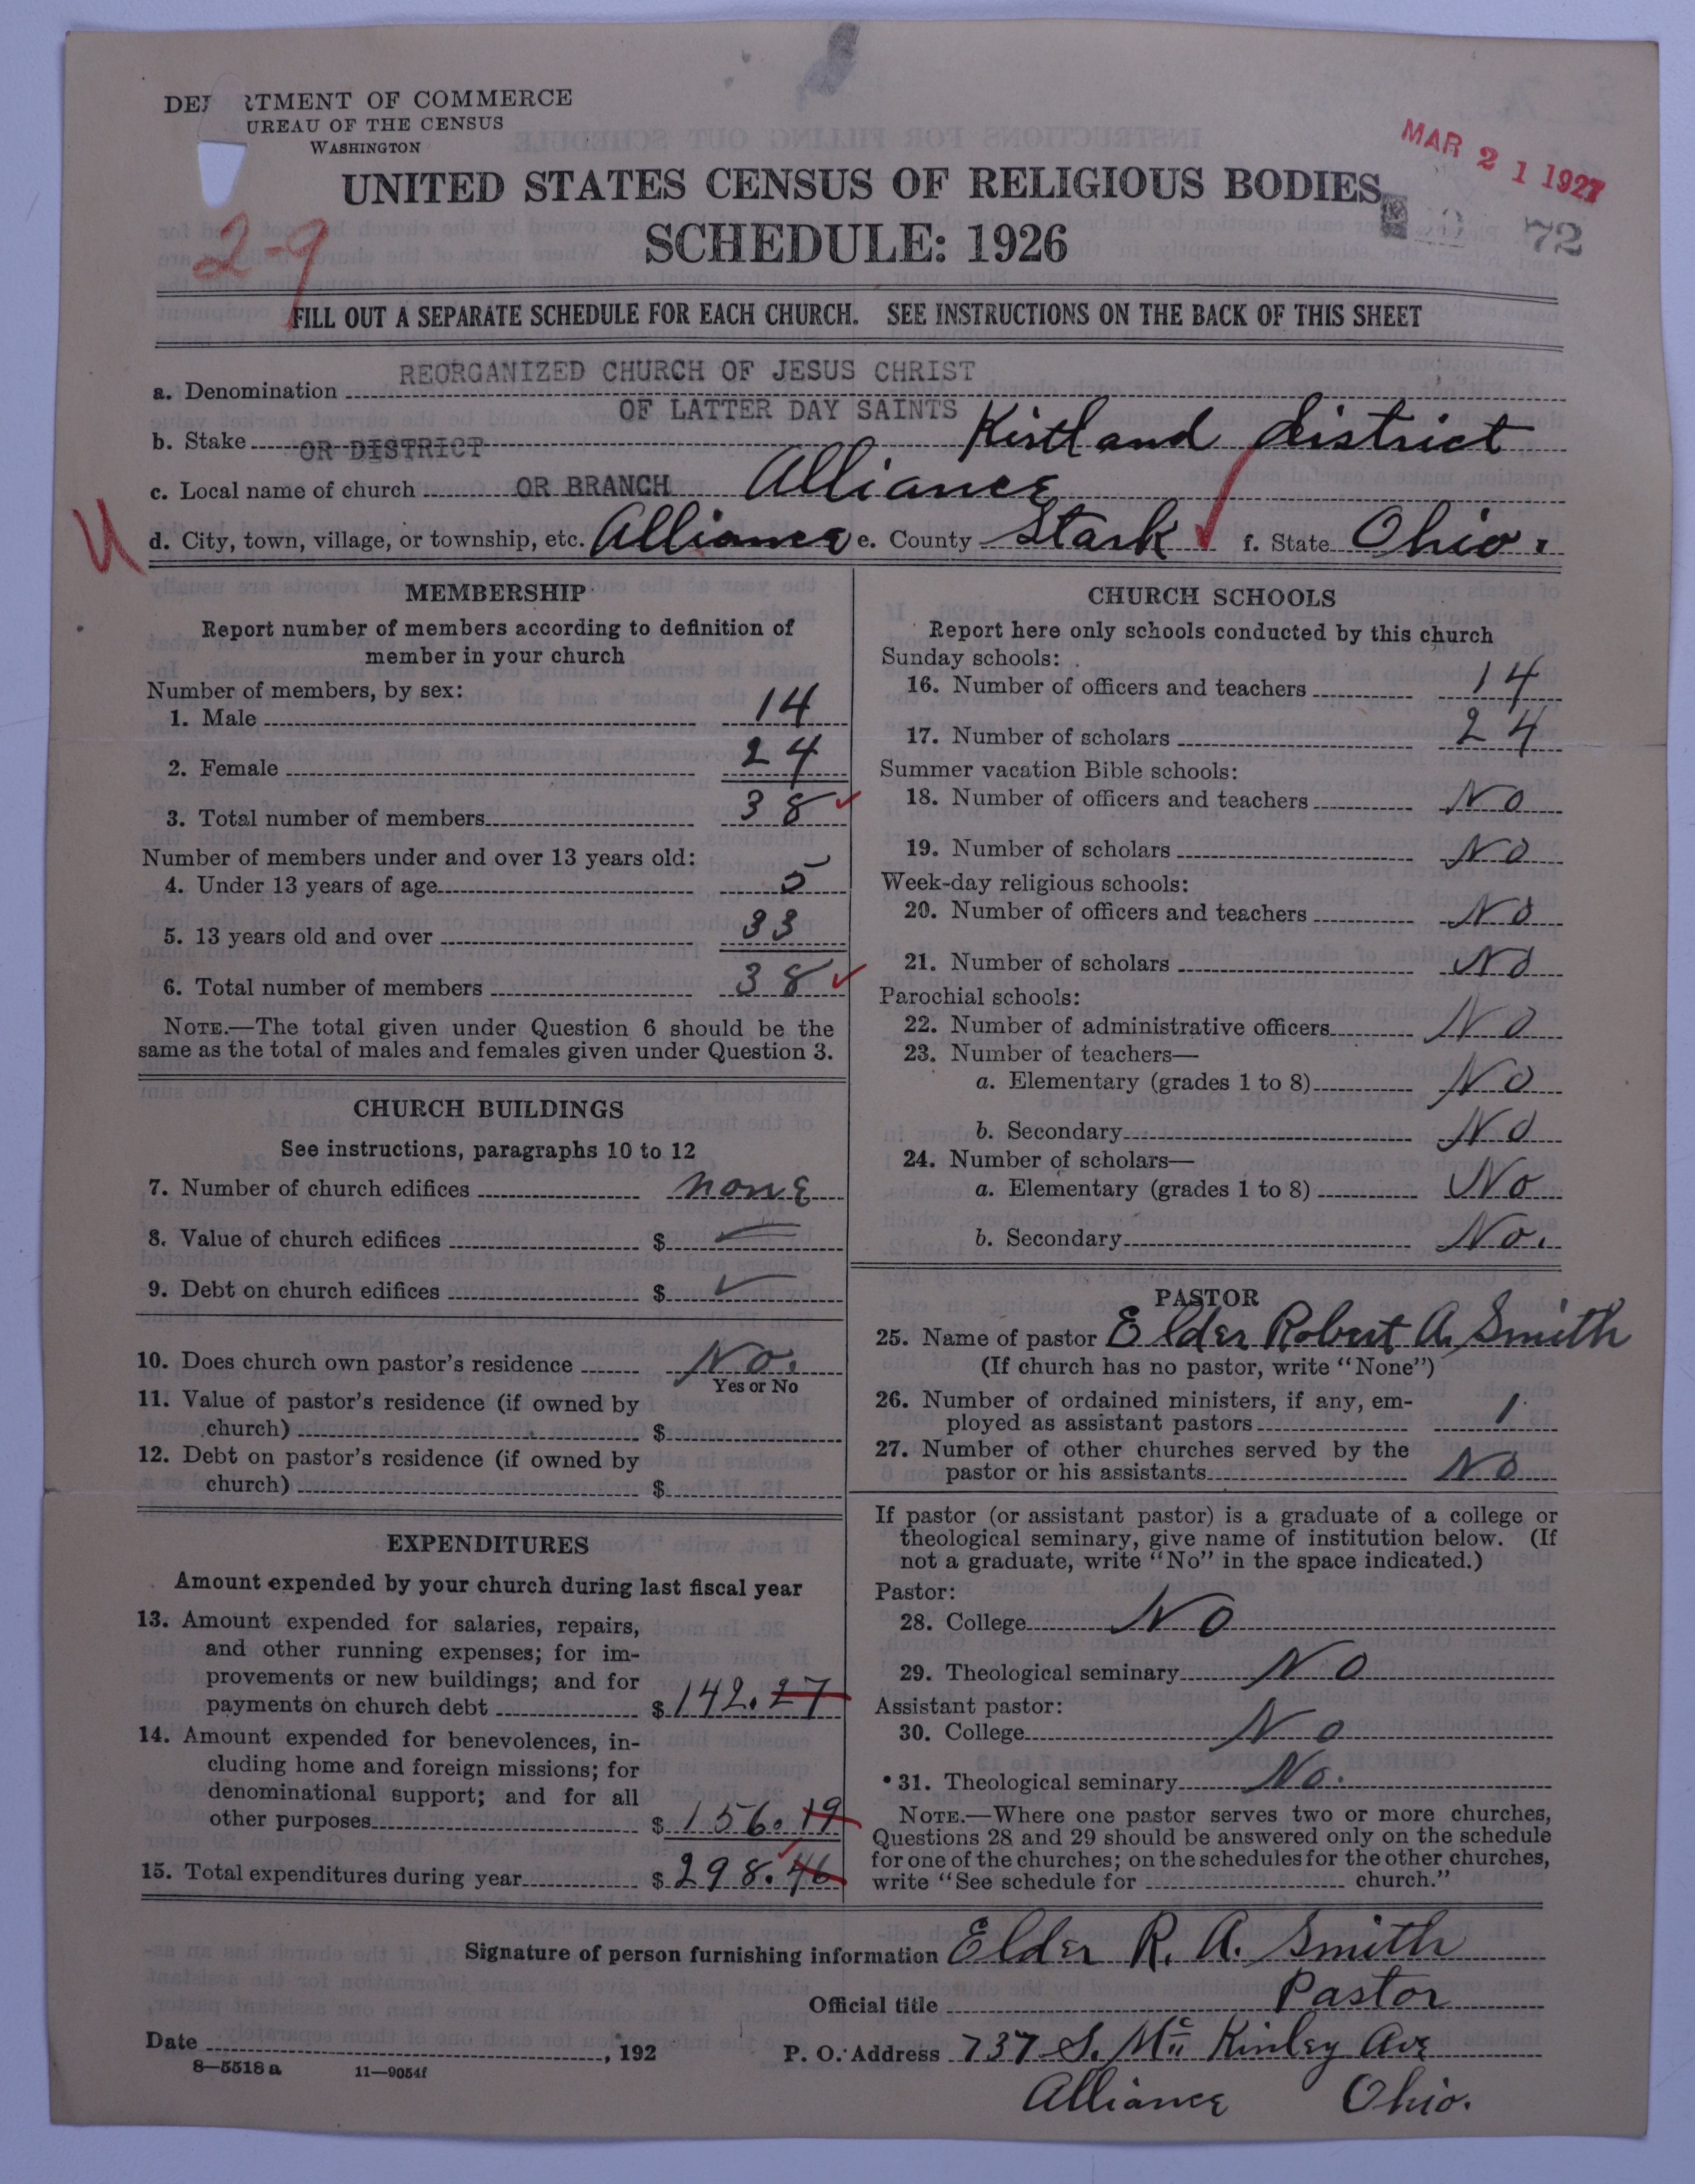 DEPARTMENT OF COMMERCE
BUREAU OF THE CENSUS
WASHINGTON
MAR 21 1927
UNITED STATES CENSUS OF RELIGIOUS BODIES
SCHEDULE: 1926
72
2-9
FILL OUT A SEPARATE SCHEDULE FOR EACH CHURCH. SEE INSTRUCTIONS ON THE BACK OF THIS SHEET
a. Denomination REORGANIZED CHURCH OF JESUS CHRIST
OF LATTER DAY SAINTS
b. Stake OR DISTRICT Kirtland district
c. Local name of church OR BRANCH Alliance
U
d. City, town, village, or township, etc. Alliance e. County Stark f. State Ohio.
MEMBERSHIP
Report number of members according to definition of
member in your church
Number of members, by sex:
1. Male 14
2. Female 24
3. Total number of members 38
Number of members under and over 13 years old:
4. Under 13 years of age 5
5. 13 years old and over 33
6. Total number of members 38
NOTE.—The total given under Question 6 should be the
same as the total of males and females given under Question 3.
CHURCH BUILDINGS
See instructions, paragraphs 10 to 12
7. Number of church edifices none
8. Value of church edifices $
9. Debt on church edifices $
10. Does church own pastor's residence No.
Yes or No
11. Value of pastor's residence (if owned by
church) $
12. Debt on pastor's residence (if owned by
church) $
EXPENDITURES
Amount expended by your church during last fiscal year
13. Amount expended for salaries, repairs,
and other running expenses; for im-
provements or new buildings; and for
payments on church debt $142.27
14. Amount expended for benevolences, in-
cluding home and foreign missions; for
denominational support; and for all
other purposes $156.19
15. Total expenditures during year $298.46
CHURCH SCHOOLS
Report here only schools conducted by this church
Sunday schools:
16. Number of officers and teachers 14
17. Number of scholars 24
Summer vacation Bible schools:
18. Number of officers and teachers No
19. Number of scholars No
Week-day religious schools:
20. Number of officers and teachers No
21. Number of scholars No
Parochial schools:
22. Number of administrative officers No
23. Number of teachers—
a. Elementary (grades 1 to 8) No
b. Secondary No
24. Number of scholars—
a. Elementary (grades 1 to 8) No
b. Secondary No.
PASTOR
25. Name of pastor Elder Robert A. Smith
(If church has no pastor, write "None")
26. Number of ordained ministers, if any, em-
ployed as assistant pastors 1
27. Number of other churches served by the
pastor or his assistants No
If pastor (or assistant pastor) is a graduate of a college or
theological seminary, give name of institution below. (If
not a graduate, write "No" in the space indicated.)
Pastor:
28. College No
29. Theological seminary No
Assistant pastor:
30. College No
31. Theological seminary No.
NOTE.—Where one pastor serves two or more churches,
Questions 28 and 29 should be answered only on the schedule
for one of the churches; on the schedules for the other churches,
write "See schedule for church."
Signature of person furnishing information Elder R. A. Smith
Official title Pastor
Date , 192
P. O. Address 737 S. Mc Kinley Ave
8—5518 a 11—9054f
Alliance Ohio.